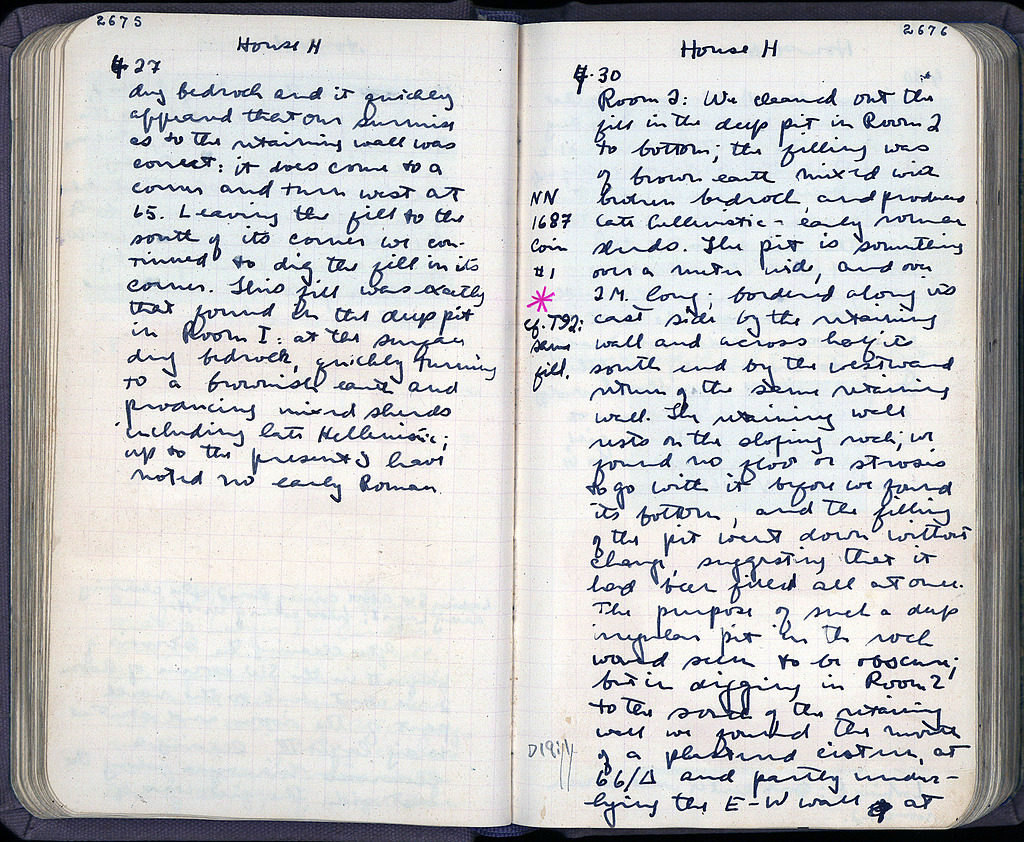 2675
House H
4.27
dug bedrock and it quickly
appeared that our surmise
as to the retaining wall was
correct: it does come to a
corner and turn west at
65. Leaving the fill to the
south of its corner we con-
tinued to dig the fill in its
corner. This fill was exactly
that found in the deep pit
in Room I: at the surface
dug bedrock, quickly turning
to a brownish earth and
producing mixed sherds
including late Hellenistic;
up to the present I have
noted no early Roman.
2676
House H
4.30
Room 2: We cleaned out the
fill in the deep pit in Room 2
to bottom; the filling was
of brown earth mixed with
broken bedrock, and produces
late hellenistic - early roman
sherds. The pit is something
over a meter wide, and over
2 M. long; bordered along its
east side by the retaining
wall and across half its
south end by the westward
return of the same retaining
wall. The retaining wall
rests on the sloping rock; we
found no floor or strosis
to go with it before we found
its bottom, and the filling
of the pit went down without
change, suggesting that it
had been filled all at once.
The purpose of such a deep
irregular pit in the rock
would seem to be obscure;
but in digging in Room 2
to the south of the retaining
wall we found the mouth
of a plastered cistern, at
66/Δ and partly under-
lying the E-W wall at
NN
1687
Coin
#1
cf. T92:
same
fill.